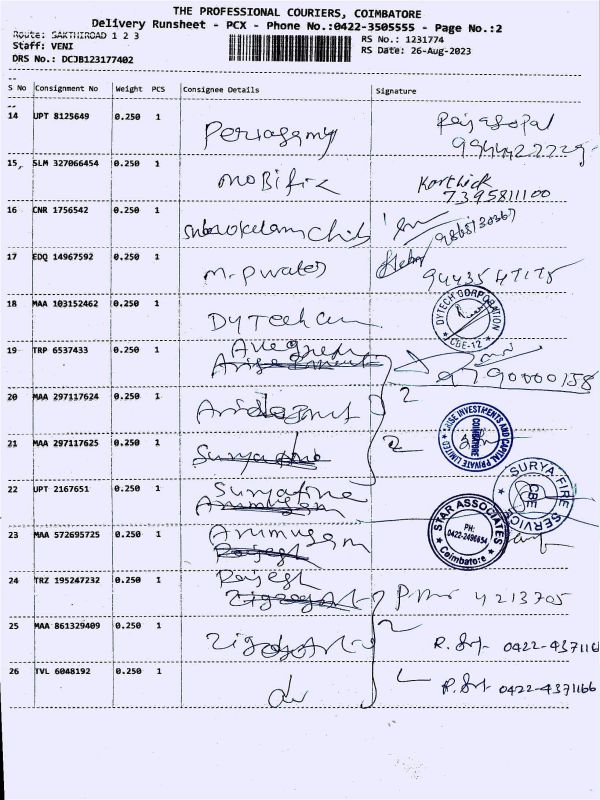 THE PROFESSIONAL COURIERS, COIMBATORE
Delivery Runsheet - PCX - Phone No.:0422-3505555 - Page No.:2
Route: SAKTHIROAD 1 2 3
RS No.: 1231774
Staff: VENI
RS Date: 26-Aug-2023
DRS No.: DCJB123177402
S No Consignment No Weight PCS Consignee Details Signature
14 UPT 8125649 0.250 1 Periasamy Rajagopal
15 SLM 327066454 0.250 1 mobifix Karthick
7395811100
16 CNR 1756542 0.250 1
17 EDQ 14967592 0.250 1 M.P water
18 MAA 103152462 0.250 1 Dytech
DYTECH CORPORATION
CBE-12
19 TRP 6537433 0.250 1
9790000158
20 MAA 297117624 0.250 1 2
ARISE INVESTMENTS AND CAPITAL PRIVATE LIMITED
COIMBATORE
21 MAA 297117625 0.250 1 Suryafire
22 UPT 2167651 0.250 1 Suryafire
Arumugam
SURYA FIRE SERVICE
CBE
23 MAA 572695725 0.250 1 Arumugam
Rajesh
STAR ASSOCIATES
PH:
0422-2496654
Coimbatore
24 TRZ 195247232 0.250 1 Rajesh 4213705
25 MAA 861329409 0.250 1 2 R. Sri 0422-437116
26 TVL 6048192 0.250 1 R. Sri 0422-4371166